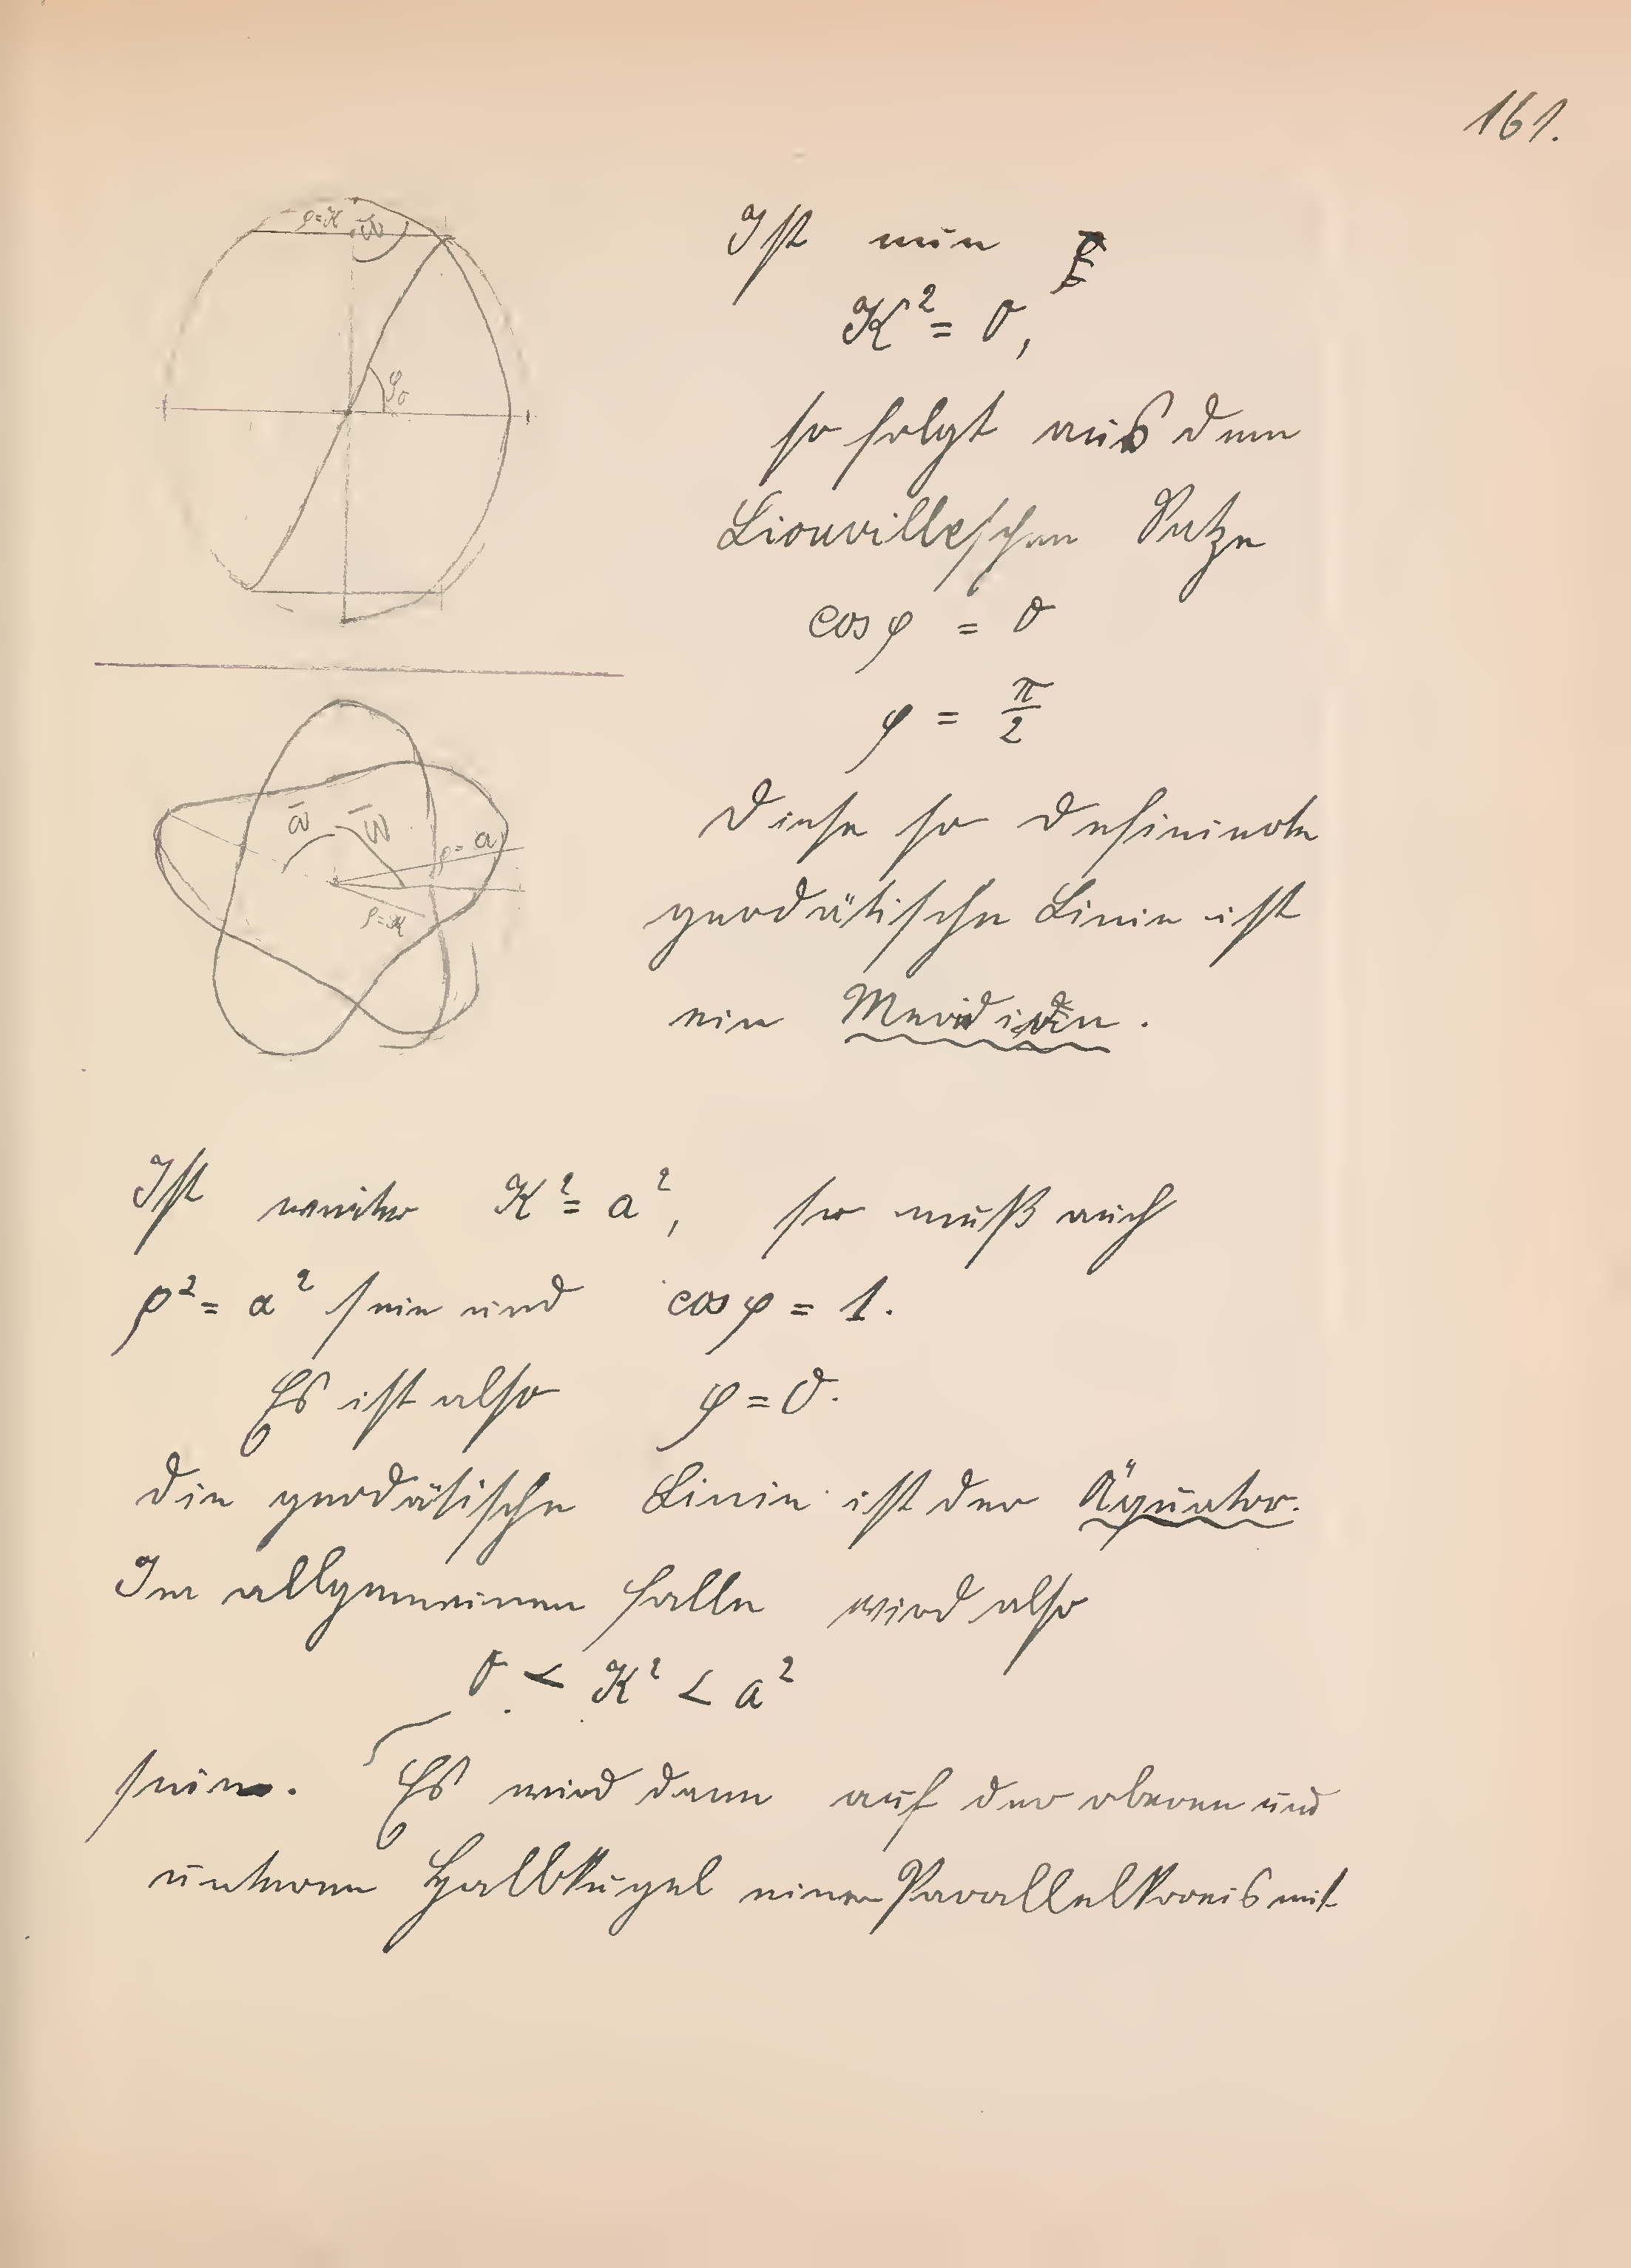 161.
ρ=K ω̄
φ₀
Ist nun
K² = 0,
so folgt aus dem
Liouvilleschen Satze
cos φ = 0
φ = π/2
Diese so definierte
geodätische Linie ist
ein Meridian.
ω̄ ω̄
ρ=a
ρ=K
Ist weiter K² = a², so muß auch
ρ² = a² sein und cos φ = 1.
Es ist also φ = 0.
Die geodätische Linie ist der Äquator.
Im allgemeinen Falle wird also
0 < K² < a²
sein. Es wird dann auf der oberen und
unteren Halbkugel einen Parallelkreis mit